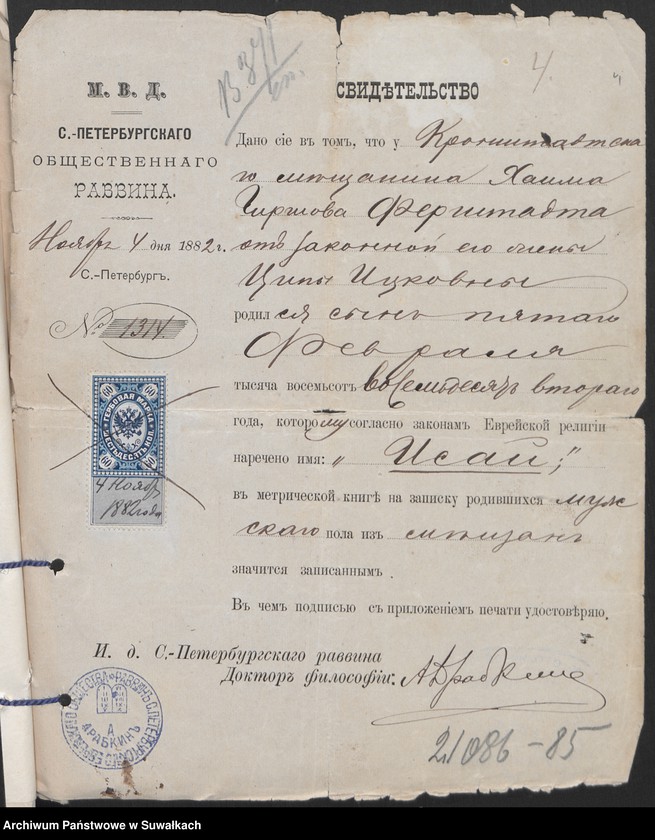 4.
М. В. Д.
С.-ПЕТЕРБУРГСКАГО
ОБЩЕСТВЕННАГО
РАВВИНА.
Ноября 4 дня 1882 г.
С.-Петербургъ.
№ 1314.
ГЕРБОВАЯ МАРКА
ШЕСТЬДЕСЯТЪ КОП.
60 60 60 60
4 Ноябр
1882 года
СВИДѢТЕЛЬСТВО
Дано сіе въ томъ, что у Кронштадтска
го мѣщанина Хаима
Гиршова Ферштадта
отъ законной его жены
Ципы Ицковны
родился сынъ пятаго
Февраля
тысяча восемьсотъ восемьдесятъ втораго
года, которому согласно законамъ Еврейской религіи
наречено имя: „Исай;"
въ метрической книгѣ на записку родившихся муж
скаго пола изъ мѣщанъ
значится записаннымъ.
Въ чемъ подписью съ приложеніемъ печати удостовѣряю.
И. д. С.-Петербургскаго раввина
Докторъ философіи: А Драбкинъ
А
ДРАБКИНЪ
21086-85
Archiwum Państwowe w Suwałkach